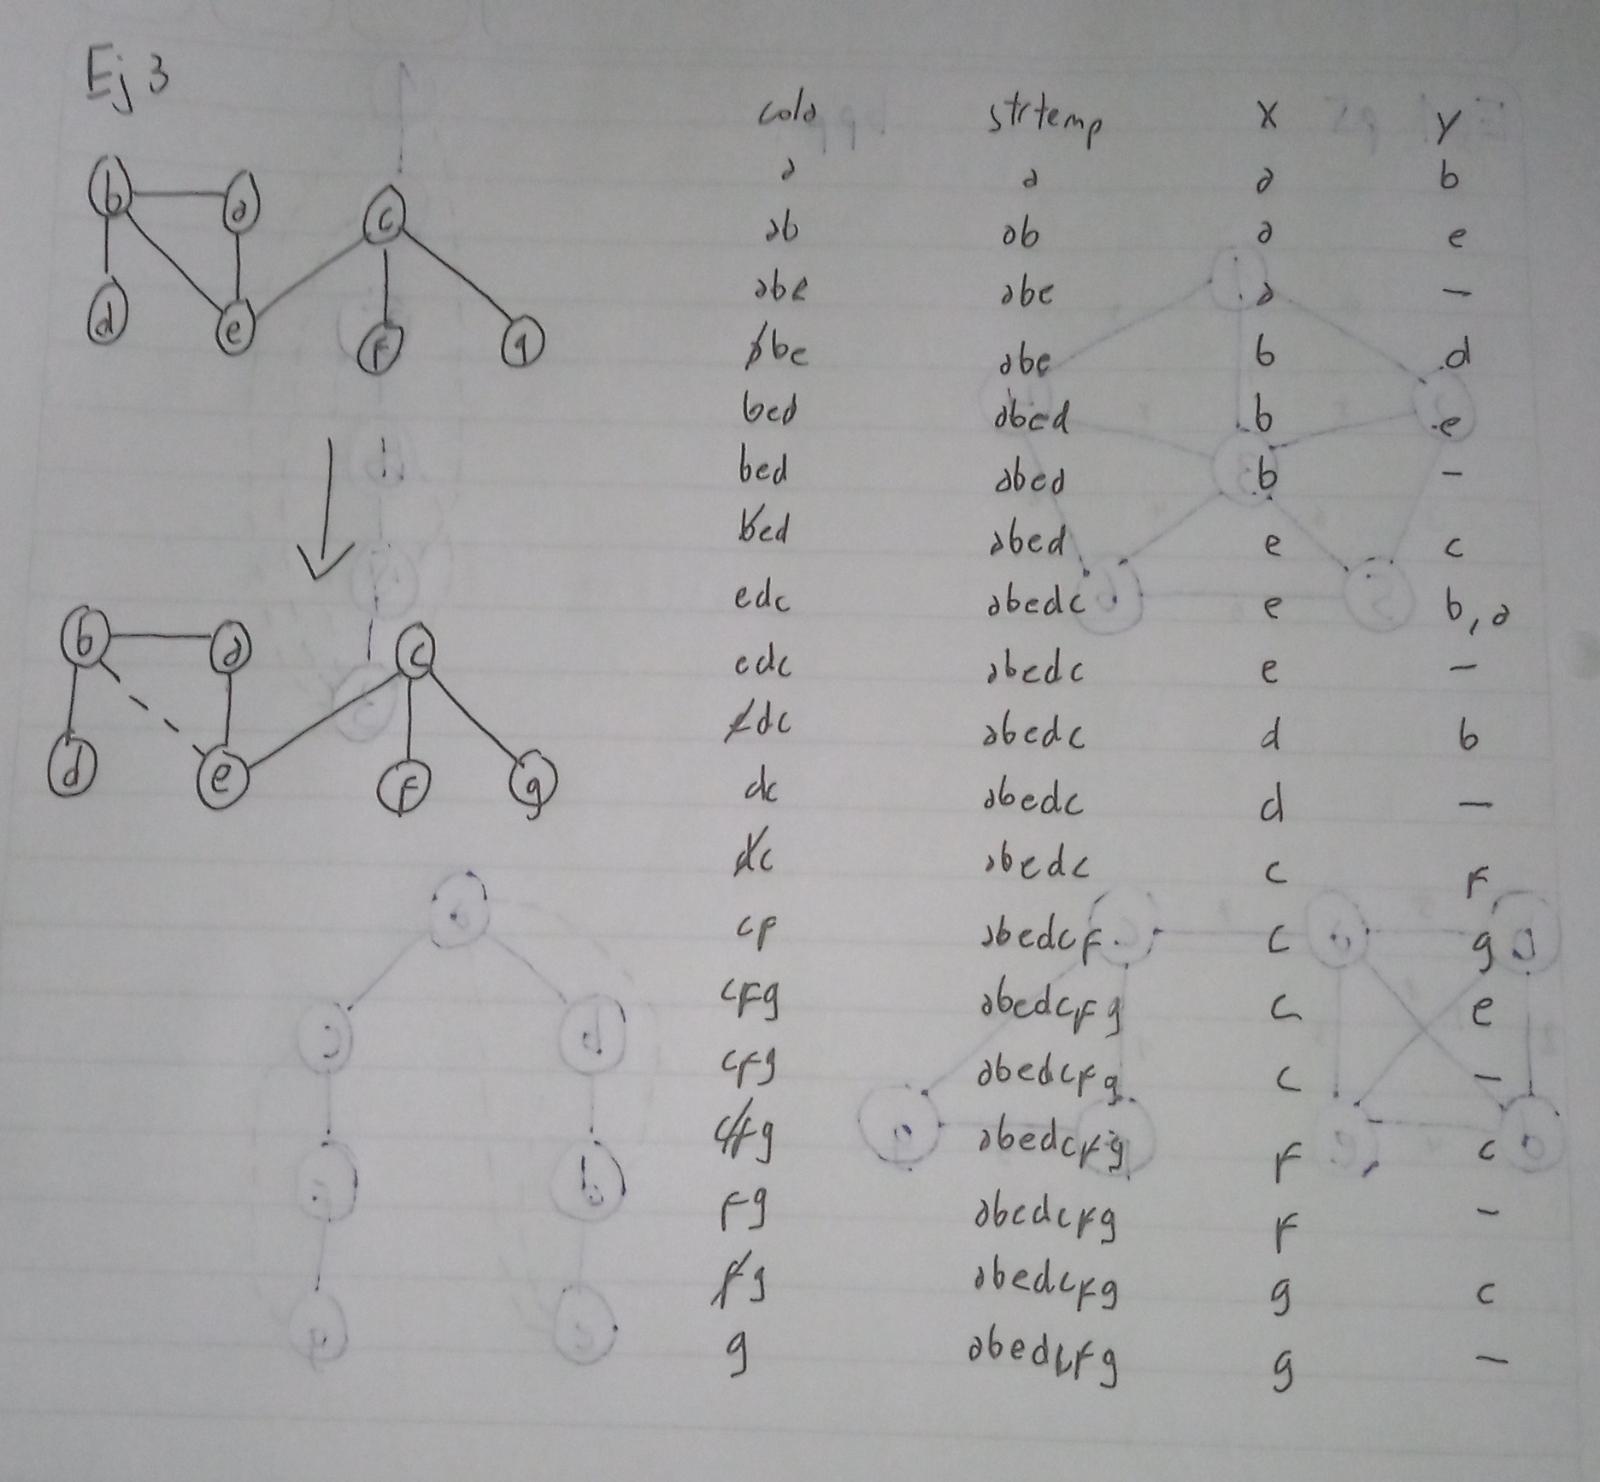 Ej 3
b a c
d e f g
b a c
d e f g
cola strtemp x y
a a a b
ab ab a e
abe abe a —
abe abe b d
bed abed b e
bed abed b —
bed abed e c
edc abedc e b, a
edc abedc e —
edc abedc d b
dc abedc d —
dc abedc c f
cf abedcf c g
cfg abedcfg c e
cfg abedcfg c —
cfg abedcfg f c
fg abedcfg f —
fg abedcfg g c
g abedcfg g —